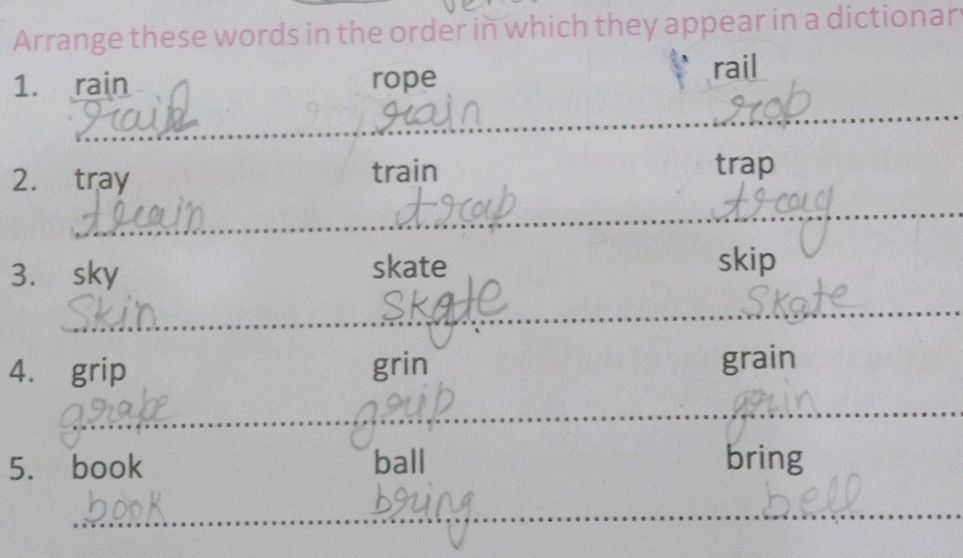 Arrange these words in the order in which they appear in a dictionary
1. rain rope rail
rain rop
2. tray train trap
train trap tray
3. sky skate skip
Skin Skate Skate
4. grip grin grain
grape grip grin
5. book ball bring
book bring bell